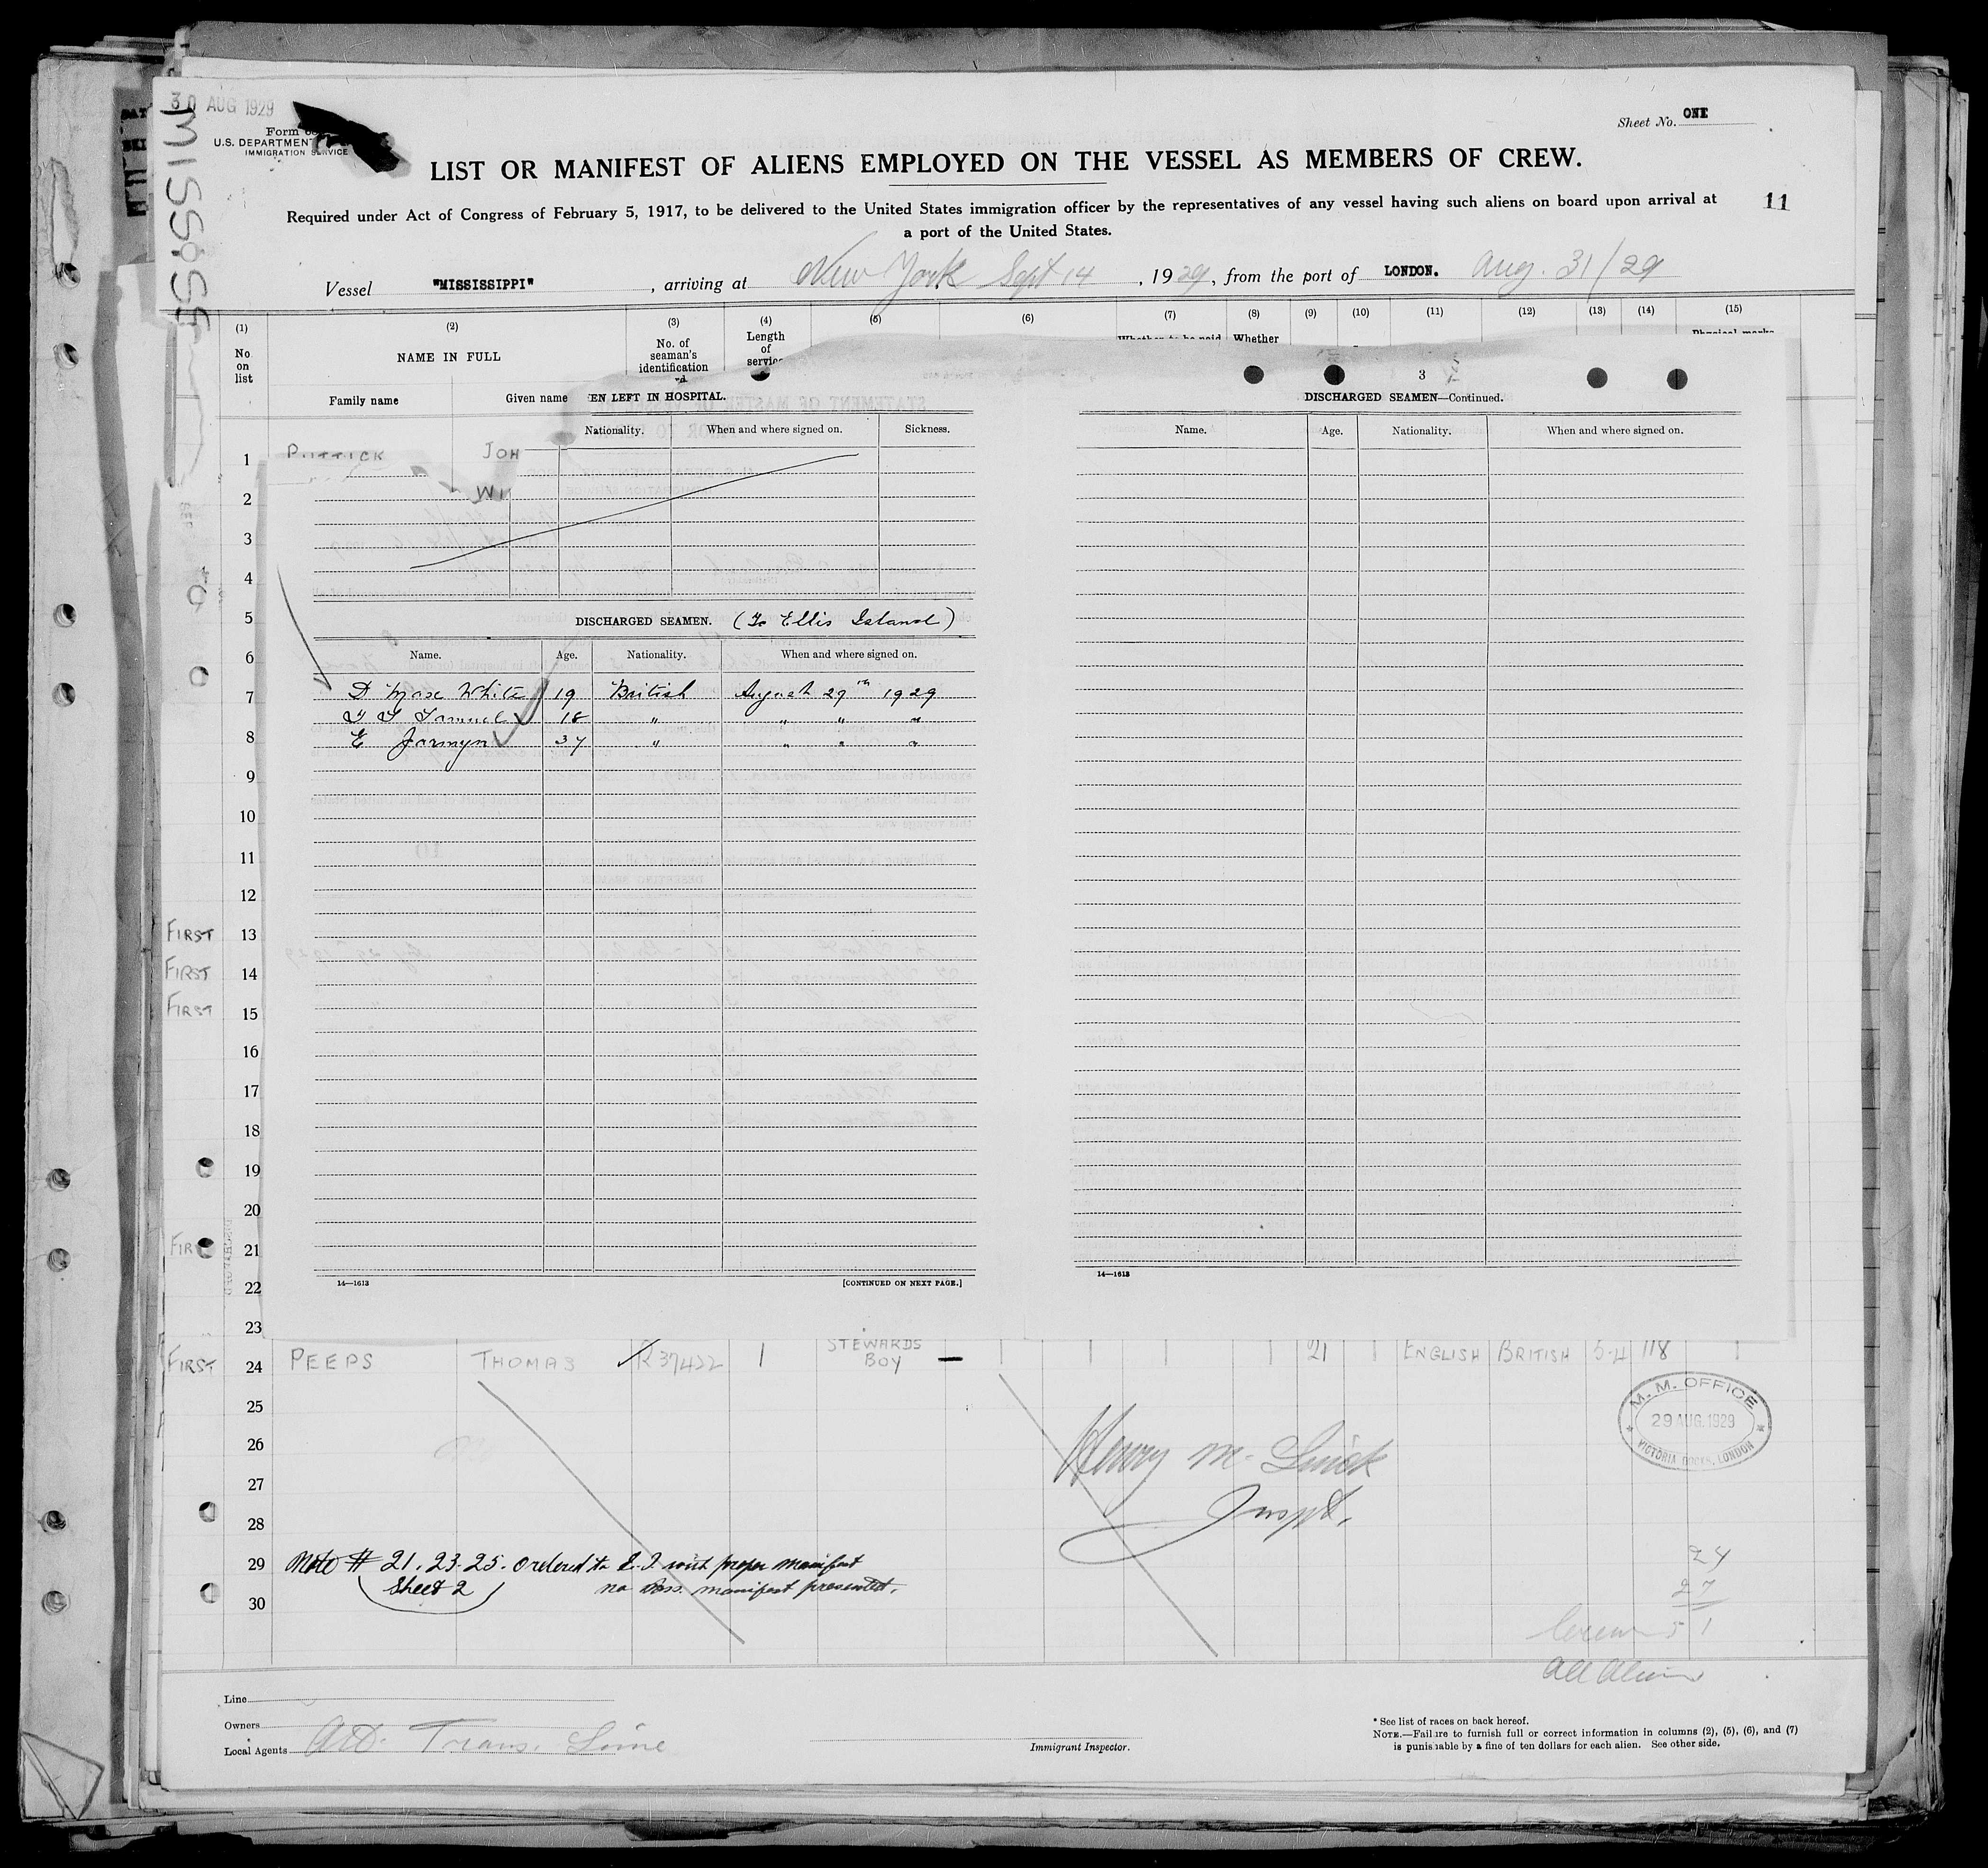 30 AUG 1929
MISSISSI
Form
U.S. DEPARTMENT
IMMIGRATION SERVICE
Sheet No. ONE
LIST OR MANIFEST OF ALIENS EMPLOYED ON THE VESSEL AS MEMBERS OF CREW.
Required under Act of Congress of February 5, 1917, to be delivered to the United States immigration officer by the representatives of any vessel having such aliens on board upon arrival at
a port of the United States.
11
Vessel "MISSISSIPPI", arriving at New York Sept 14, 1929, from the port of LONDON. Aug. 31/29
(1) (2) (3) (4) (5) (6) (7) (8) (9) (10) (11) (12) (13) (14) (15)
No. on list
NAME IN FULL
Family name Given name
No. of seaman's identification
Length of service
Whether to be paid
Whether
Physical marks
3
EN LEFT IN HOSPITAL.
Nationality. When and where signed on. Sickness.
1 PUTTICK JOH
2 WI
3
4
5
DISCHARGED SEAMEN. (To Ellis Island)
6
Name. Age. Nationality. When and where signed on.
7 D Max White 19 British August 29th 1929
18 " " " "
8 E Jarmyn 37 " " " "
9
10
11
12
FIRST 13
FIRST 14
FIRST 15
16
17
18
19
20
FIR 21
22
23
14—1613 [CONTINUED ON NEXT PAGE.]
DISCHARGED SEAMEN—Continued.
Name. Age. Nationality. When and where signed on.
14—1613
FIRST 24 PEEPS THOMAS 1 STEWARDS BOY 21 ENGLISH BRITISH 5-4 118
25
26
27
28
29
30
M. M. OFFICE
29 AUG. 1929
VICTORIA DOCKS, LONDON
Henry M.
Inspt.
Note # 21. 23. 25. ordered to E. I. with proper manifest
Sheet 2 no Pass. manifest presented.
24
27
51
All Aliens
Line
Owners
Local Agents Atl. Trans. Line
Immigrant Inspector.
* See list of races on back hereof.
NOTE.—Failure to furnish full or correct information in columns (2), (5), (6), and (7)
is punishable by a fine of ten dollars for each alien. See other side.